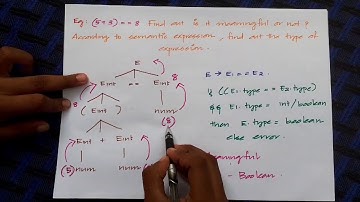 Eg: (5+3) == 8 Find out is it meaningful or not?
According to semantic expression, find out the type of
expression.
E
Eint == Eint 8
8 ( Eint ) num
(8)
Eint + Eint
(5) num num
E → E1 == E2.
if ((E1.type == E2.type)
&& E1.type = int/boolean
then E.type = boolean
else error.
meaningful
- Boolean.